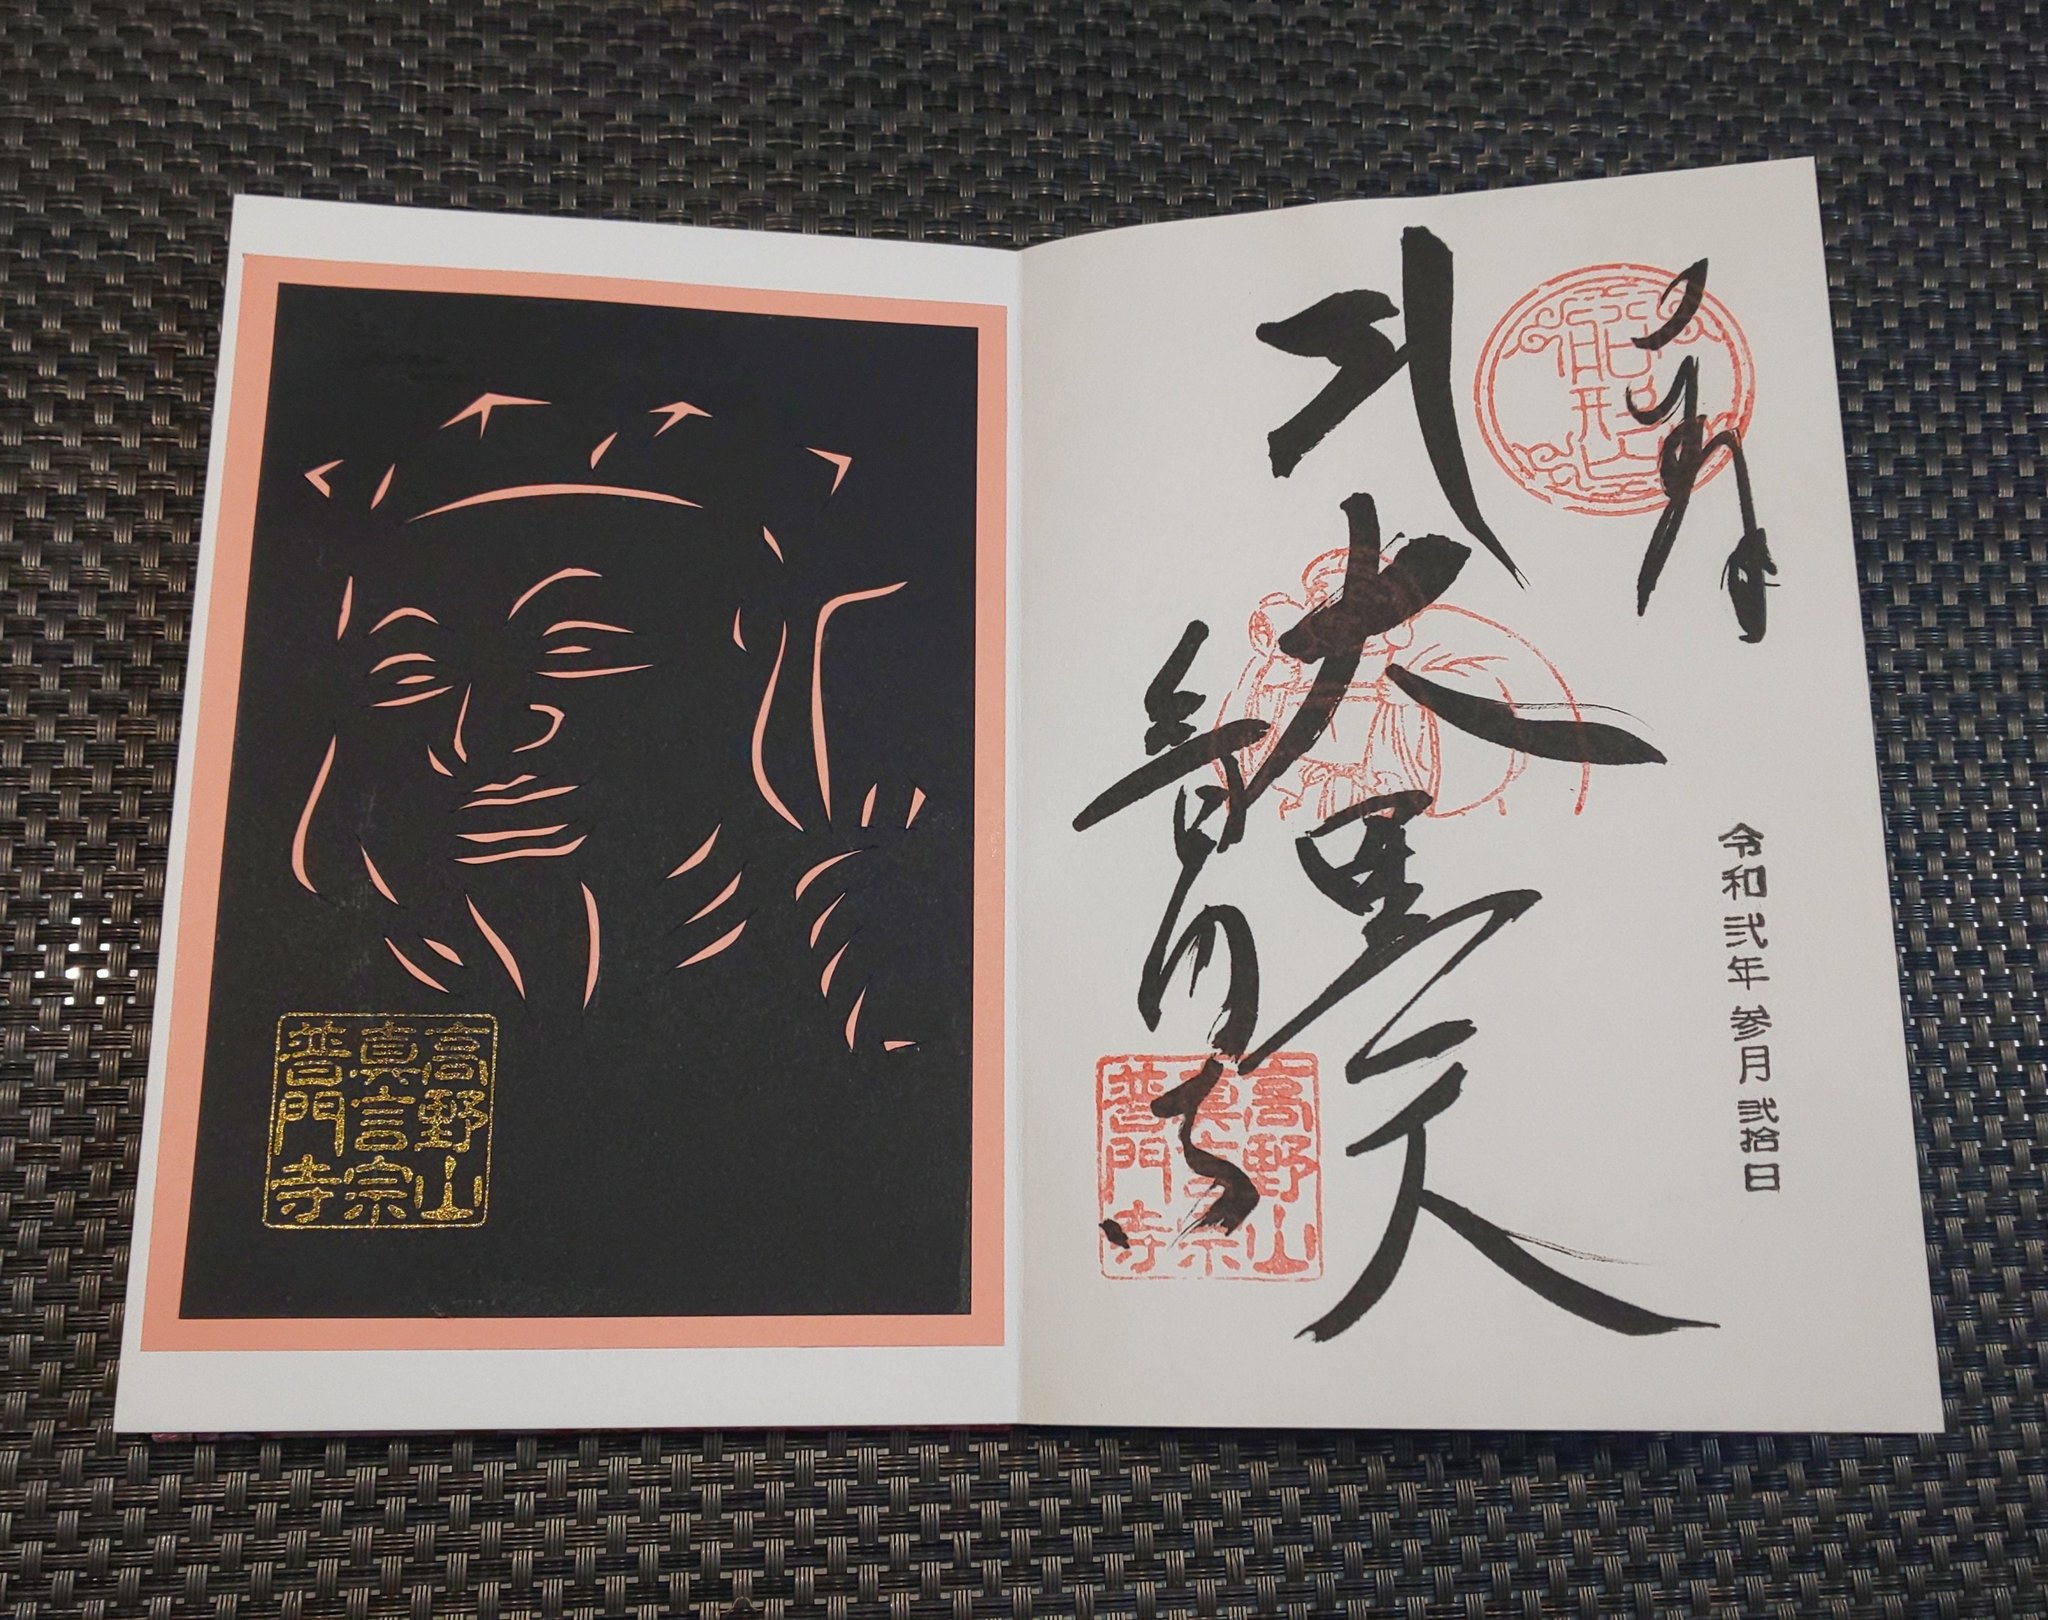 奉拝
令和弐年参月弐拾日
大黒天
普門寺
高野山
真言宗
普門寺
高野山
真言宗
普門寺